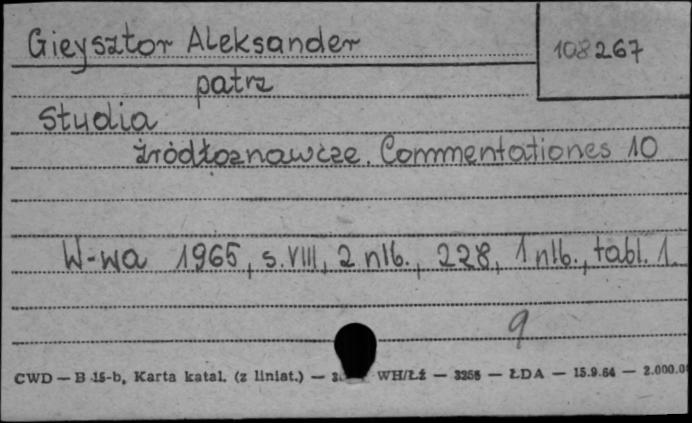 Gieysztor Aleksander
108267
patrz
Studia
źródłoznawcze. Commentationes 10
W-wa 1965, s. VIII, 2 nlb., 228, 1 nlb., tabl. 1.
9
CWD — B 15-b, Karta katal. (z liniat.) — WH/Łź — 3255 — ŁDA — 15.9.64 — 2.000.0